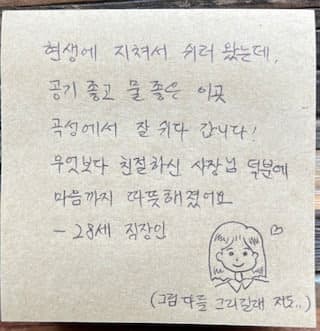 현생에 지쳐서 쉬러 왔는데,
공기 좋고 물 좋은 이곳
곡성에서 잘 쉬다 갑니다!
무엇보다 친절하신 사장님 덕분에
마음까지 따뜻해졌어요
- 28세 직장인
(그림 다들 그리길래 저도..)